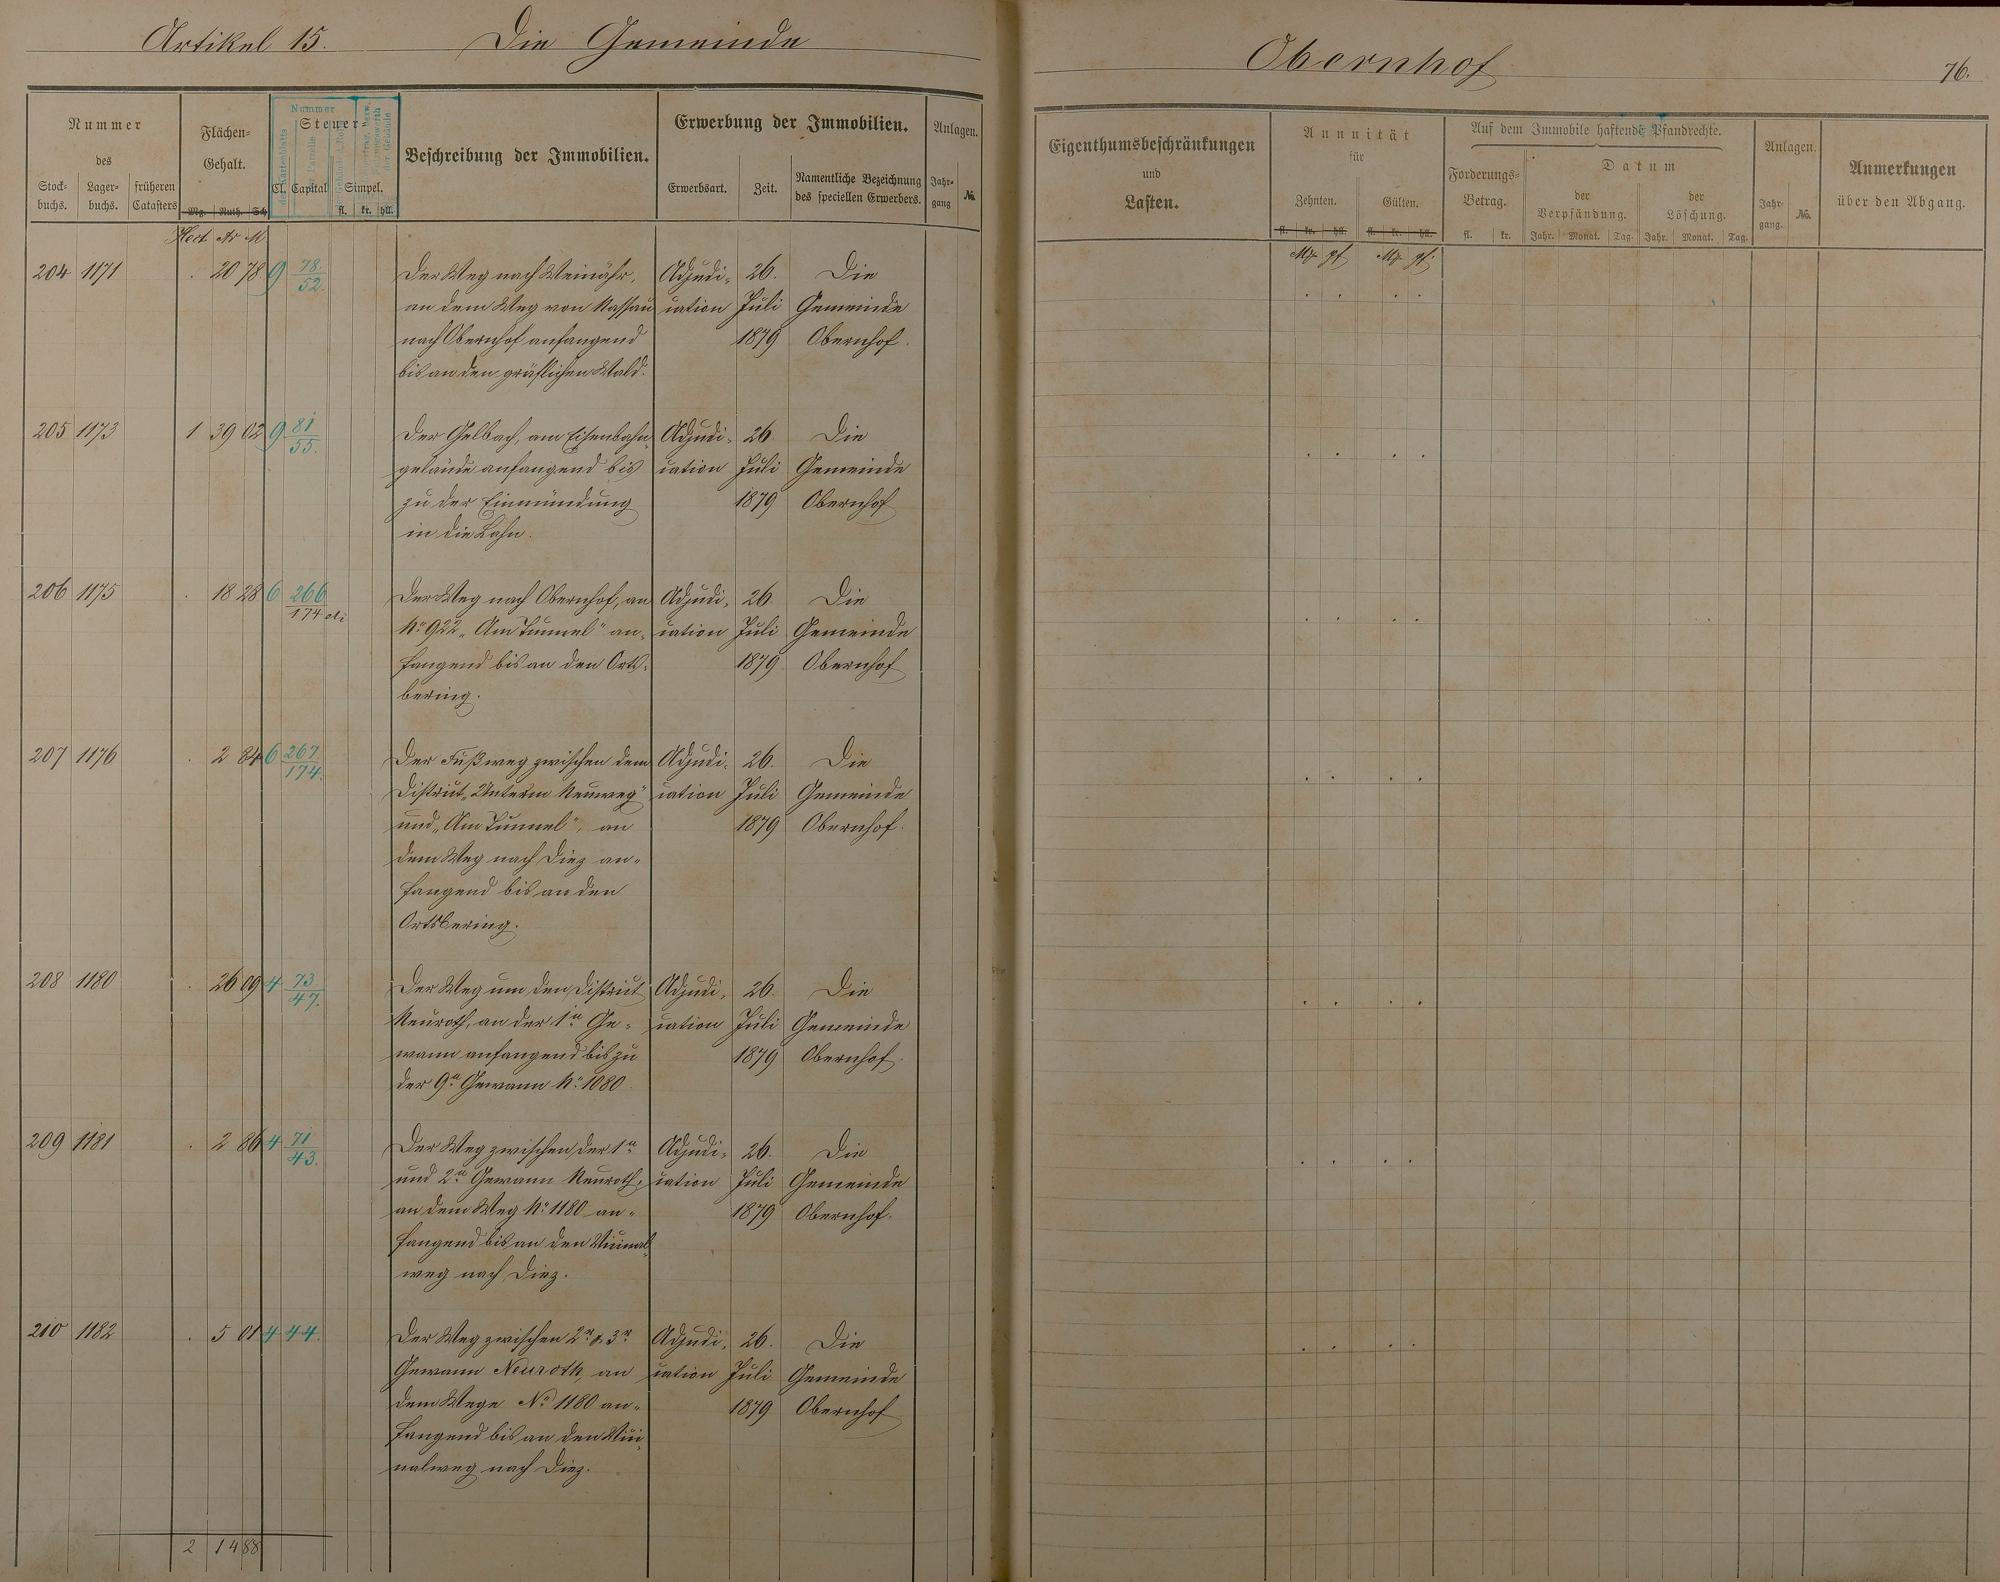 Artikel 15. Die Gemeinde
Obernhof
76.
Nummer
des
Stock-
buchs.
Lager-
buchs.
früheren
Catasters
Flächen-
Gehalt.
Mg. Ruth. Sch
Hect Ar M
Nummer
des Kartenblatts
der Parzelle
der Gebäude
Steuer-
Cl. Capital Simpel.
fl. kr. hll.
Beschreibung der Immobilien.
Erwerbung der Immobilien.
Erwerbsart. Zeit. Namentliche Bezeichnung
des speciellen Erwerbers.
Anlagen.
Jahr-
gang
№.
Eigenthumsbeschränkungen
und
Lasten.
Annuität
für
Zehnten. Gülten.
fl. kr. hll. fl. kr. hll.
Mk. pf. Mk. pf.
Auf dem Immobile haftende Pfandrechte.
Forderungs-
Betrag.
fl. kr.
Datum
der
Verpfändung.
Jahr. Monat. Tag.
der
Löschung.
Jahr. Monat. Tag.
Anlagen.
Jahr-
gang.
№.
Anmerkungen
über den Abgang.
204 1171 . 20 78 9 78/52. Der Weg nach Weinähr, Adjudi- 26. Die
an dem Weg von Nassau cation Juli Gemeinde
nach Obernhof anfangend 1879 Obernhof.
bis an den gräflichen Wald.
205 1173 1 39 02 9 81/55. Der Gelbach, am Eisenbahn- Adjudi- 26. Die
gelände anfangend bis cation Juli Gemeinde
zu der Einmündung 1879 Obernhof
in die Lahn.
206 1175 . 18 28 6 266/174 Der Weg nach Obernhof, an Adjudi- 26. Die
No 922 „Am Tunnel" an- cation Juli Gemeinde
fangend bis an den Orts- 1879 Obernhof
bering.
207 1176 . 2 84 6 267/174. Der Fußweg zwischen dem Adjudi- 26. Die
District „Unterm Neuweg" cation Juli Gemeinde
und „Am Tunnel", an 1879 Obernhof.
dem Weg nach Diez an-
fangend bis an den
Ortsbering.
208 1180 . 26 09 4 73/47. Der Weg um den District Adjudi- 26. Die
Neuroth, an der 1n Ge- cation Juli Gemeinde
wann anfangend bis zu 1879 Obernhof.
der 9n Gewann No 1080.
209 1181 . 2 86 4 71/43. Der Weg zwischen der 1n Adjudi- 26. Die
und 2n Gewann Neuroth, cation Juli Gemeinde
an dem Weg No 1180 an- 1879 Obernhof.
fangend bis an den Vicinal-
weg nach Diez.
210 1182 . 5 01 4 44. Der Weg zwischen 2n & 3n Adjudi- 26. Die
Gewann Neuroth, an cation Juli Gemeinde
dem Wege No 1180 an- 1879 Obernhof
fangend bis an den Vici-
nalweg nach Diez.
2 14 88